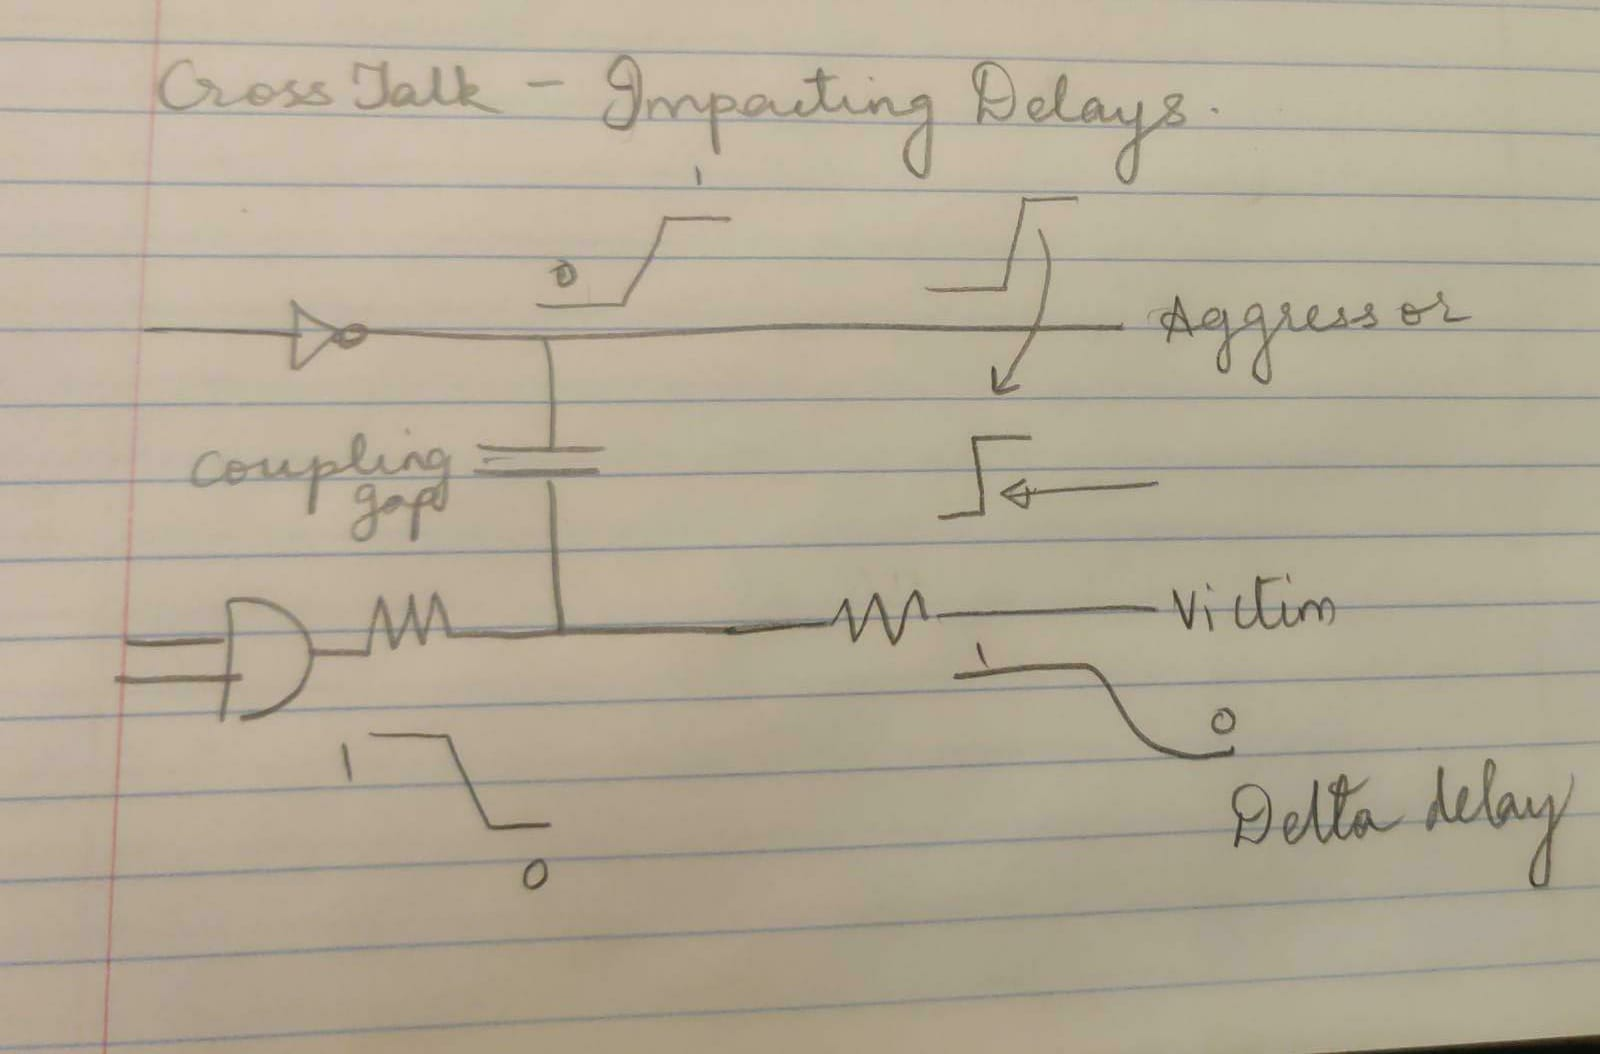 Cross Talk - Impacting Delays.
1
0
Aggressor
Coupling
gap
Victim
1
0
1
0
Delta delay